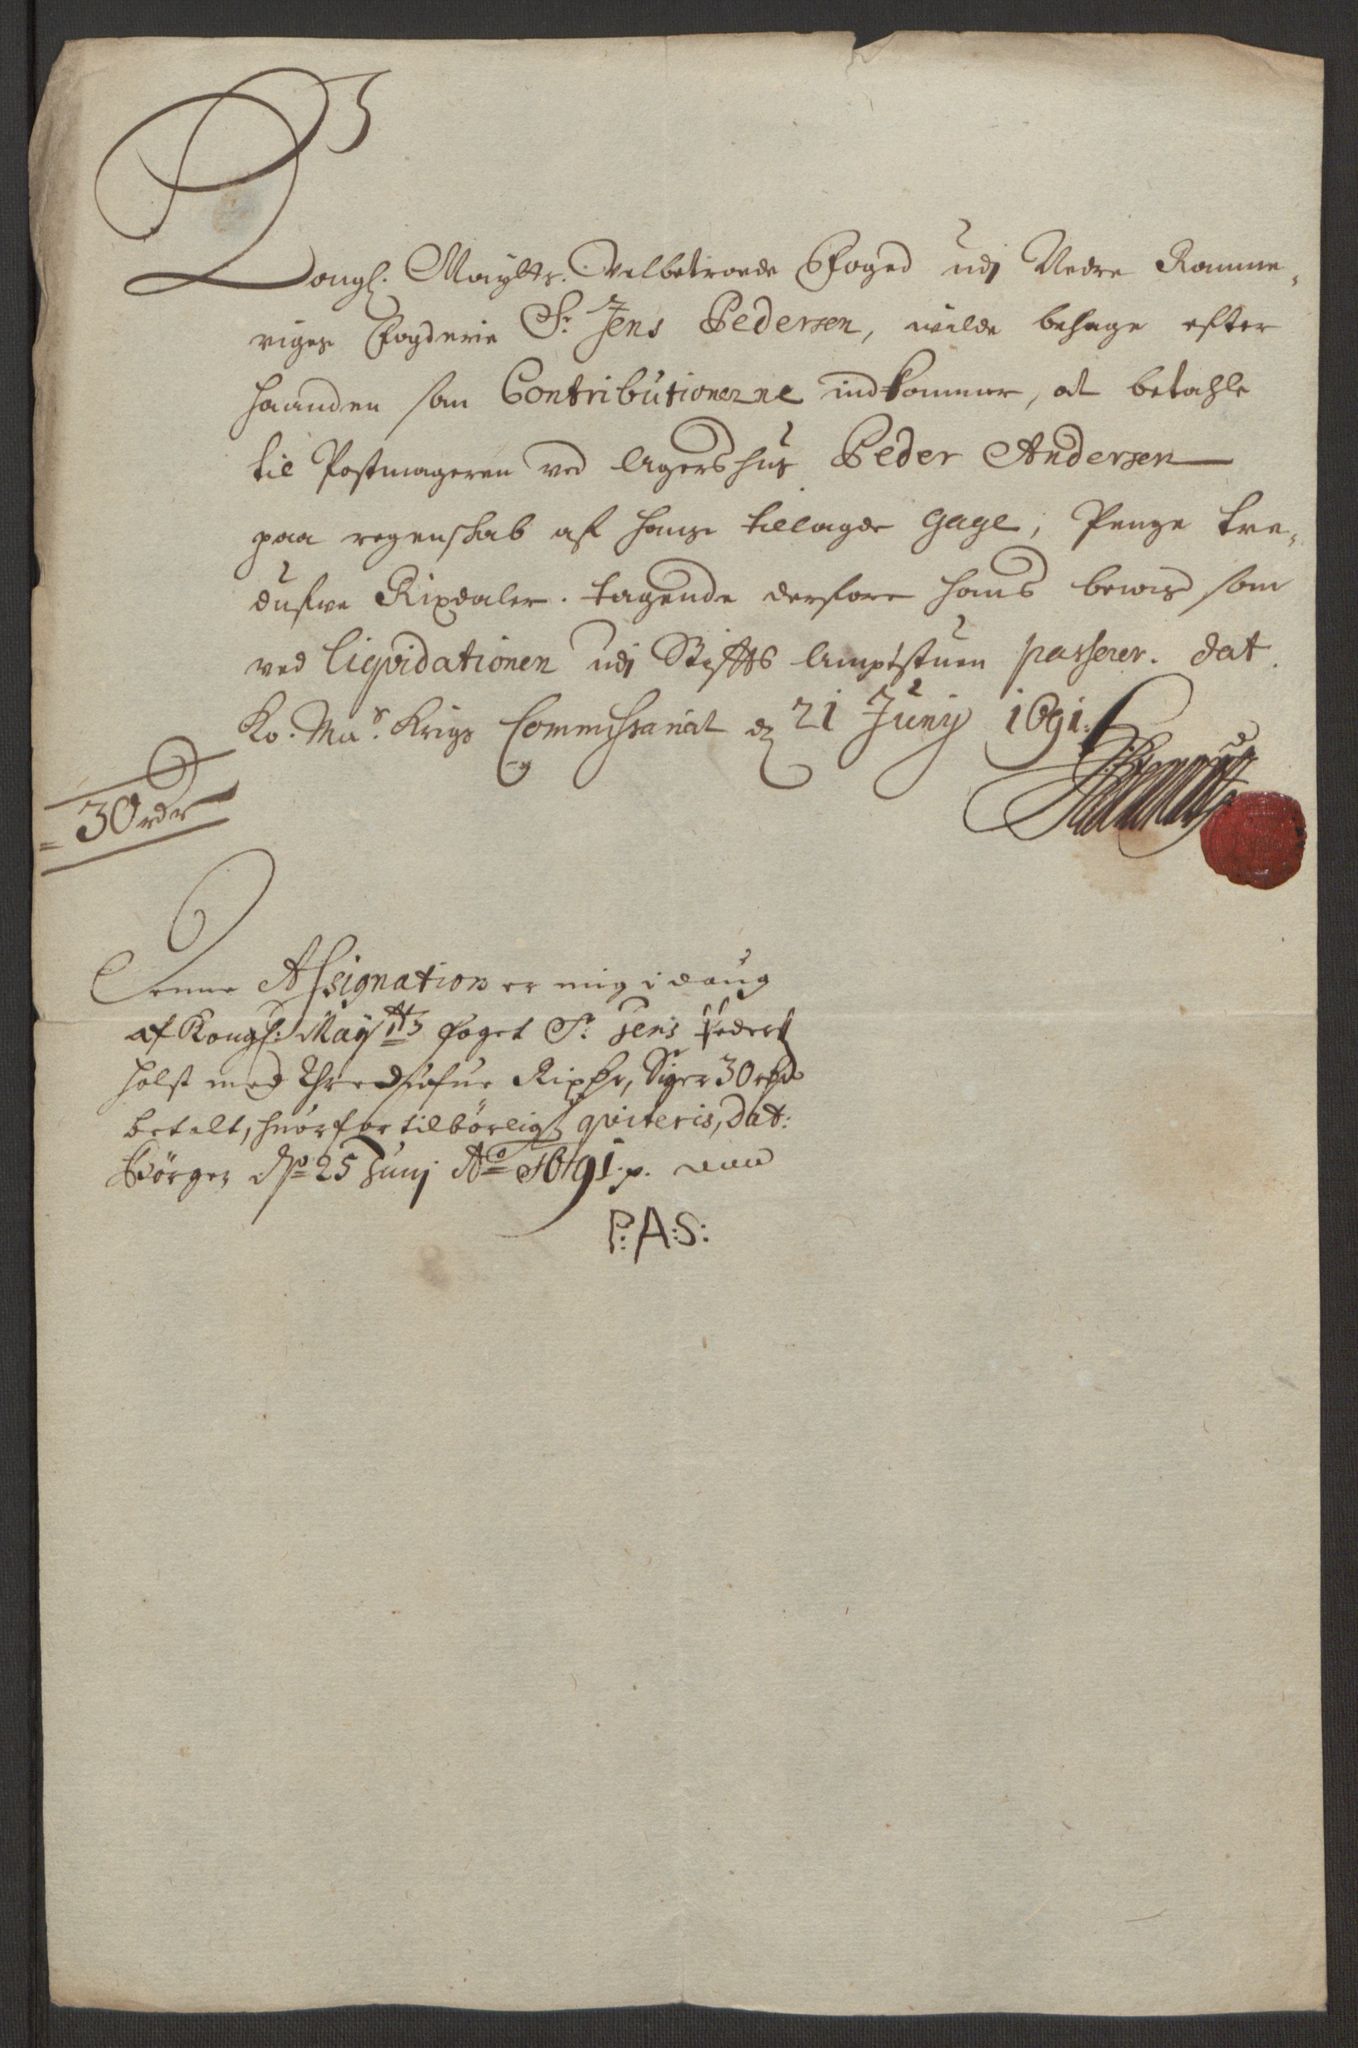 Kongl. Maÿtts. Velbetroede Foged udj Nedre Romme-
riges Fogderie Sr. Jens Pedersen, wilde behage efter
haanden som Contributionerne indkommer, at betahle
til Postmageren ved Agershus Peder Andersen
paa regenskab af hans tillagde gage, Penge tre-
dufve Rixdaler. tagende derfore hans bewis som
ved liqvidationen udj Stiffts Amptstuen passerer. dat.
Ko. Mas. Krigs Commissariat d. 21 Junÿ 1691.
30 rdr
Denne Assignation er mig i daug
af Kongl: Maÿtts foget Sr. Jens Peders:
Holst med Thredsufue Rixdr, Siger 30 rd
betalt, huorfor tilbörligt qviteris, dat:
d. 25 Junj Ao 1691. p.
P:A:S: